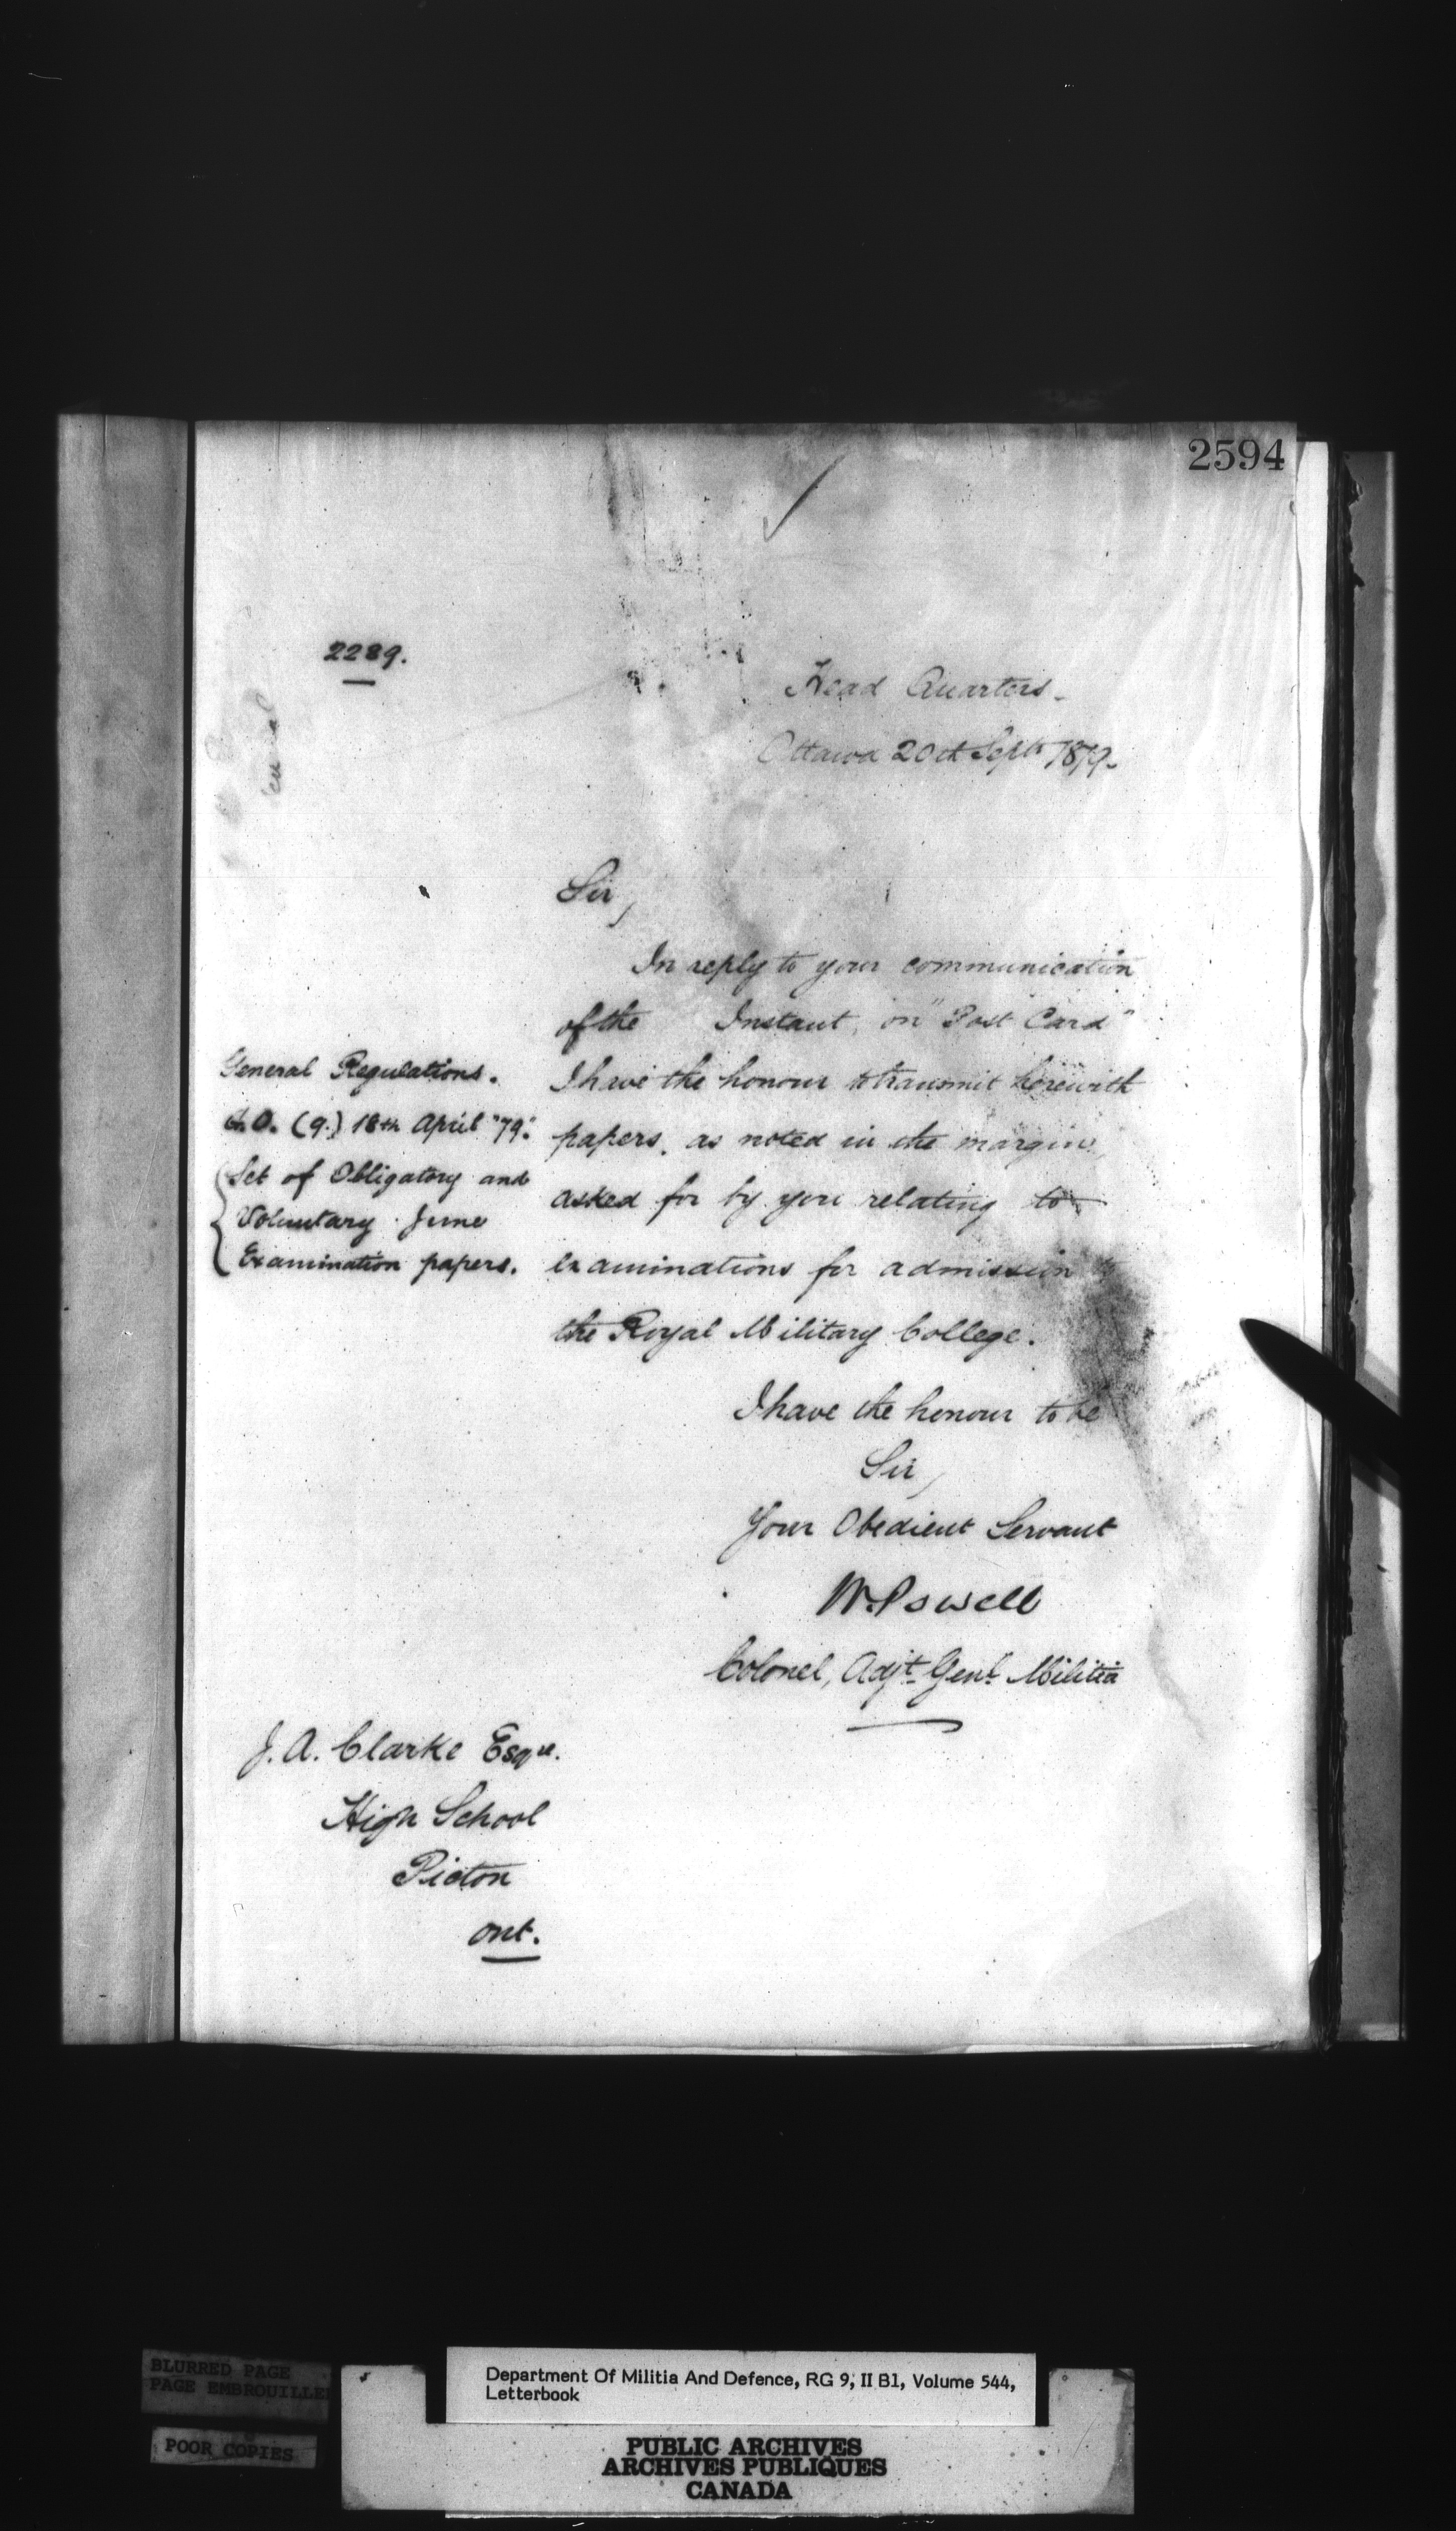 2594
2289.
Head Quarters.
Ottawa 20th Septr 1879.
Sir,
In reply to your communication
of the Instant, on "Post Card"
I have the honour to transmit herewith
papers, as noted in the margin,
asked for by you relating to
examinations for admission to
the Royal Military College.
General Regulations.
G.O. (9.) 18th April "79."
Set of Obligatory and
Voluntary June
Examination papers.
I have the honour to be
Sir,
Your Obedient Servant
W. Powell
Colonel, Adjt. Genl. Militia
J. A. Clarke Esqre.
High School
Picton
Ont.
BLURRED PAGE
PAGE EMBROUILLEE
POOR COPIES
Department Of Militia And Defence, RG 9, II B1, Volume 544,
Letterbook
PUBLIC ARCHIVES
ARCHIVES PUBLIQUES
CANADA